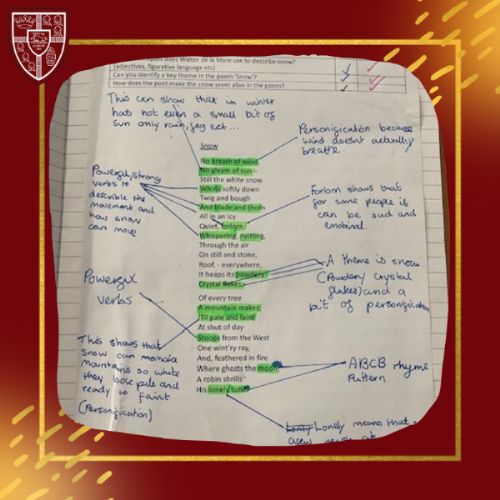 does Walter de la Mare use to describe snow?
(adjectives, figurative language etc)
Can you identify a key theme in the poem 'Snow'?
How does the poet make the snow seem alive in the poem?
This can show that in winter
has not even a small bit of
sun only rain, fog ect...
Personification because
wind doesnt actually
breathe.
Powerful, strong
verbs to
describe the
movement and
how snow
can move
Forlorn shows that
for some people it
can be sad and
emotional.
Snow
No breath of wind,
No gleam of sun –
Still the white snow
Whirls softly down
Twig and bough
And blade and thorn
All in an icy
Quiet, forlorn.
Whispering, rustling,
Through the air
On still and stone,
Roof, - everywhere,
It heaps its powdery
Crystal flakes,
Of every tree
A mountain makes;
'Til pale and faint
At shut of day
Stoops from the West
One wint'ry ray,
And, feathered in fire
Where ghosts the moon,
A robin shrills
His lonely tune.
A theme is snow
(Powdery crystal
flakes) and a
bit of personification
Powerful
verbs
This shows that
snow can
mountains so white
they look pale and
ready to faint
(Personification)
ABCB rhyme
Pattern
Lonely means that